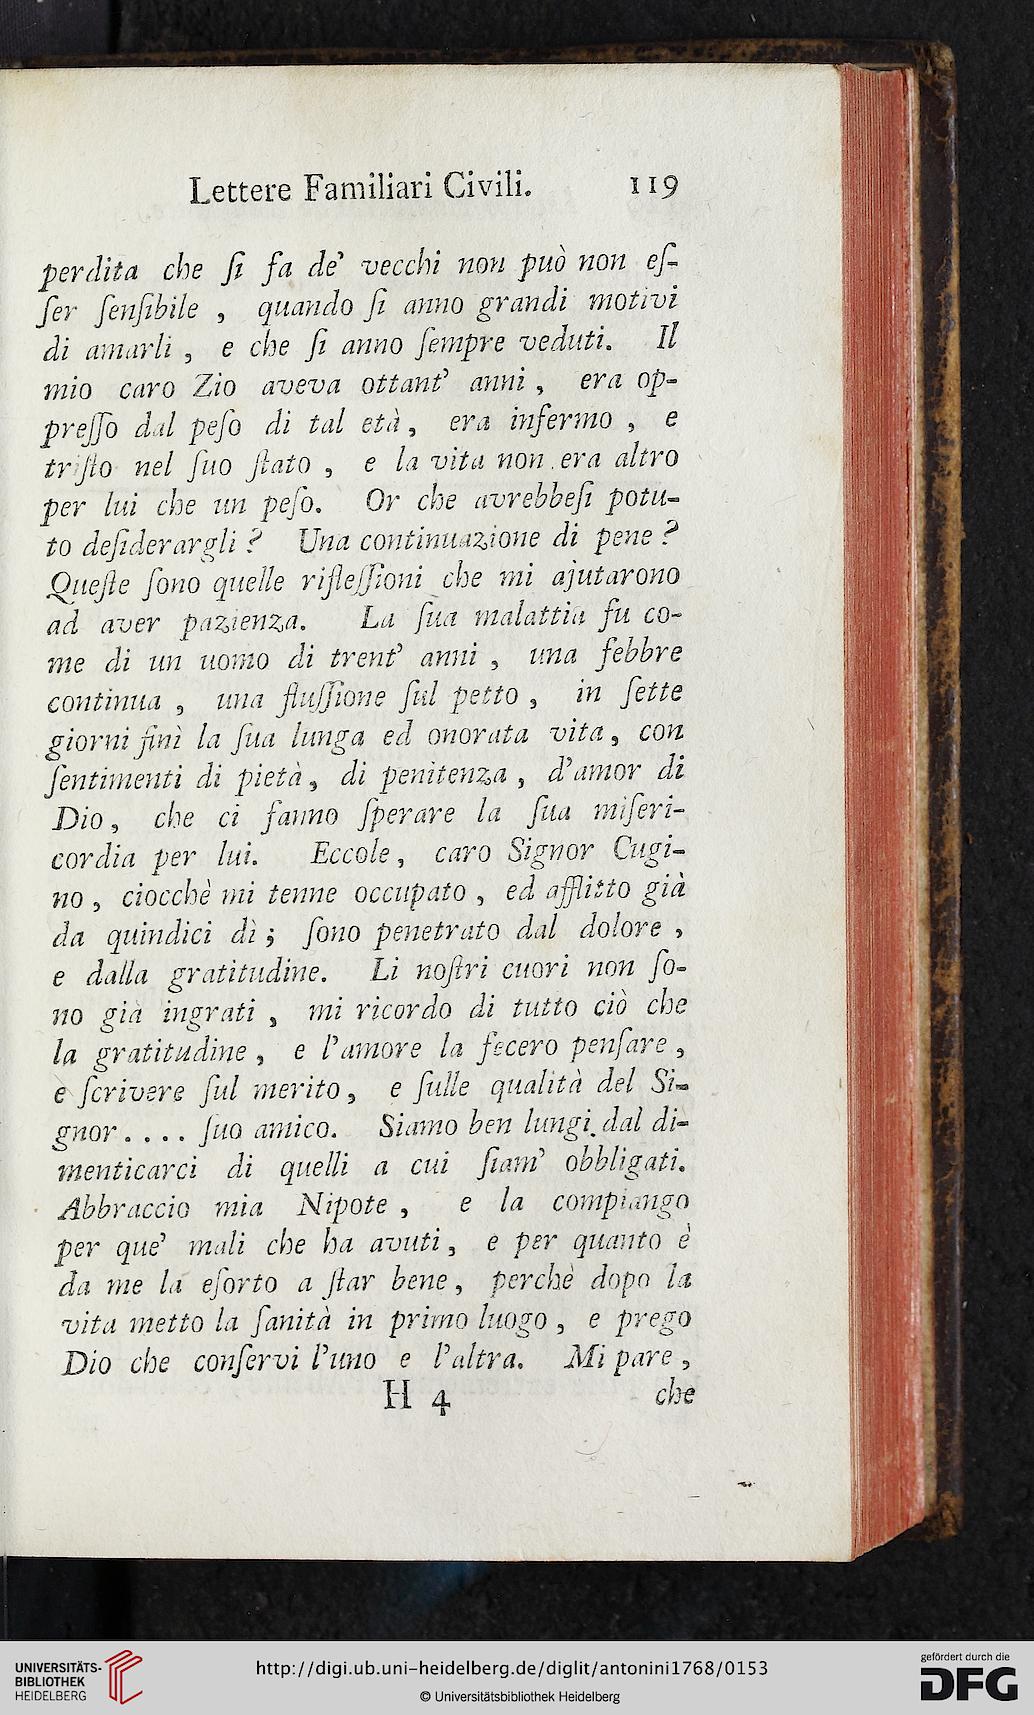 Lettere Familiari Civili. 119
perdita che ſi fa de' vecchi non può non eſ-
ſer ſenſibile , quando ſi anno grandi motivi
di amarli , e che ſi anno ſempre veduti. Il
mio caro Zio aveva ottant' anni , era op-
preſſo dal peſo di tal età, era infermo , e
triſto nel ſuo ſtato , e la vita non era altro
per lui che un peſo. Or che avrebbeſi potu-
to deſiderargli ? Una continuazione di pene ?
Queſte ſono quelle rifleſſioni che mi ajutarono
ad aver pazienza. La ſua malattia fu co-
me di un uomo di trent' anni , una febbre
continua , una fluſſione ſul petto , in ſette
giorni finì la ſua lunga ed onorata vita, con
ſentimenti di pietà, di penitenza , d'amor di
Dio, che ci fanno ſperare la ſua miſeri-
cordia per lui. Eccole, caro Signor Cugi-
no , ciocchè mi tenne occupato , ed afflitto già
da quindici dì ; ſono penetrato dal dolore ,
e dalla gratitudine. Li noſtri cuori non ſo-
no già ingrati , mi ricordo di tutto ciò che
la gratitudine , e l'amore la fecero penſare ,
e ſcrivere ſul merito, e ſulle qualità del Si-
gnor . . . . ſuo amico. Siamo ben lungi dal di-
menticarci di quelli a cui ſiam' obbligati.
Abbraccio mia Nipote , e la compiango
per que' mali che ha avuti, e per quanto è
da me la eſorto a ſtar bene, perchè dopo la
vita metto la ſanità in primo luogo , e prego
Dio che conſervi l'uno e l'altra. Mi pare ,
H 4 che
UNIVERSITÄTS-
BIBLIOTHEK
HEIDELBERG
http://digi.ub.uni-heidelberg.de/diglit/antonini1768/0153
© Universitätsbibliothek Heidelberg
gefördert durch die
DFG